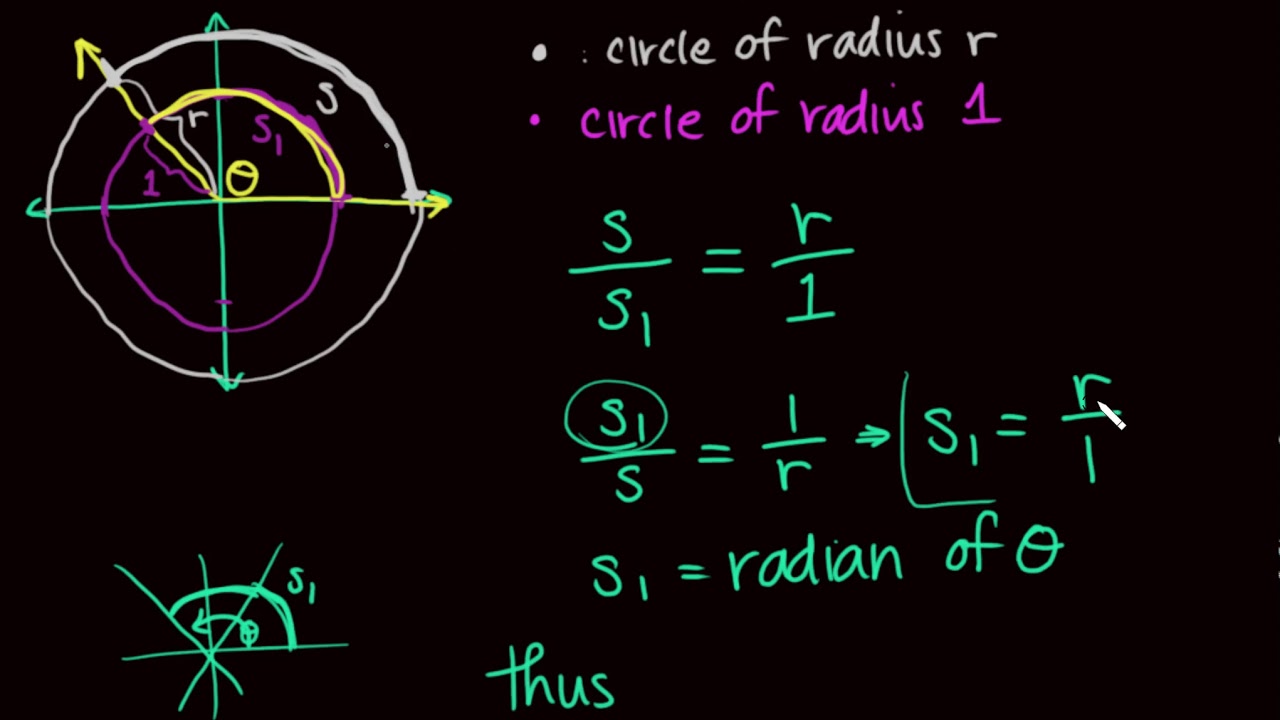 • : circle of radius r
• circle of radius 1
s
r
s₁
1
θ
s/s₁ = r/1
s₁/s = 1/r ⇒ s₁ = r/1
s₁ = radian of θ
s₁
θ
thus